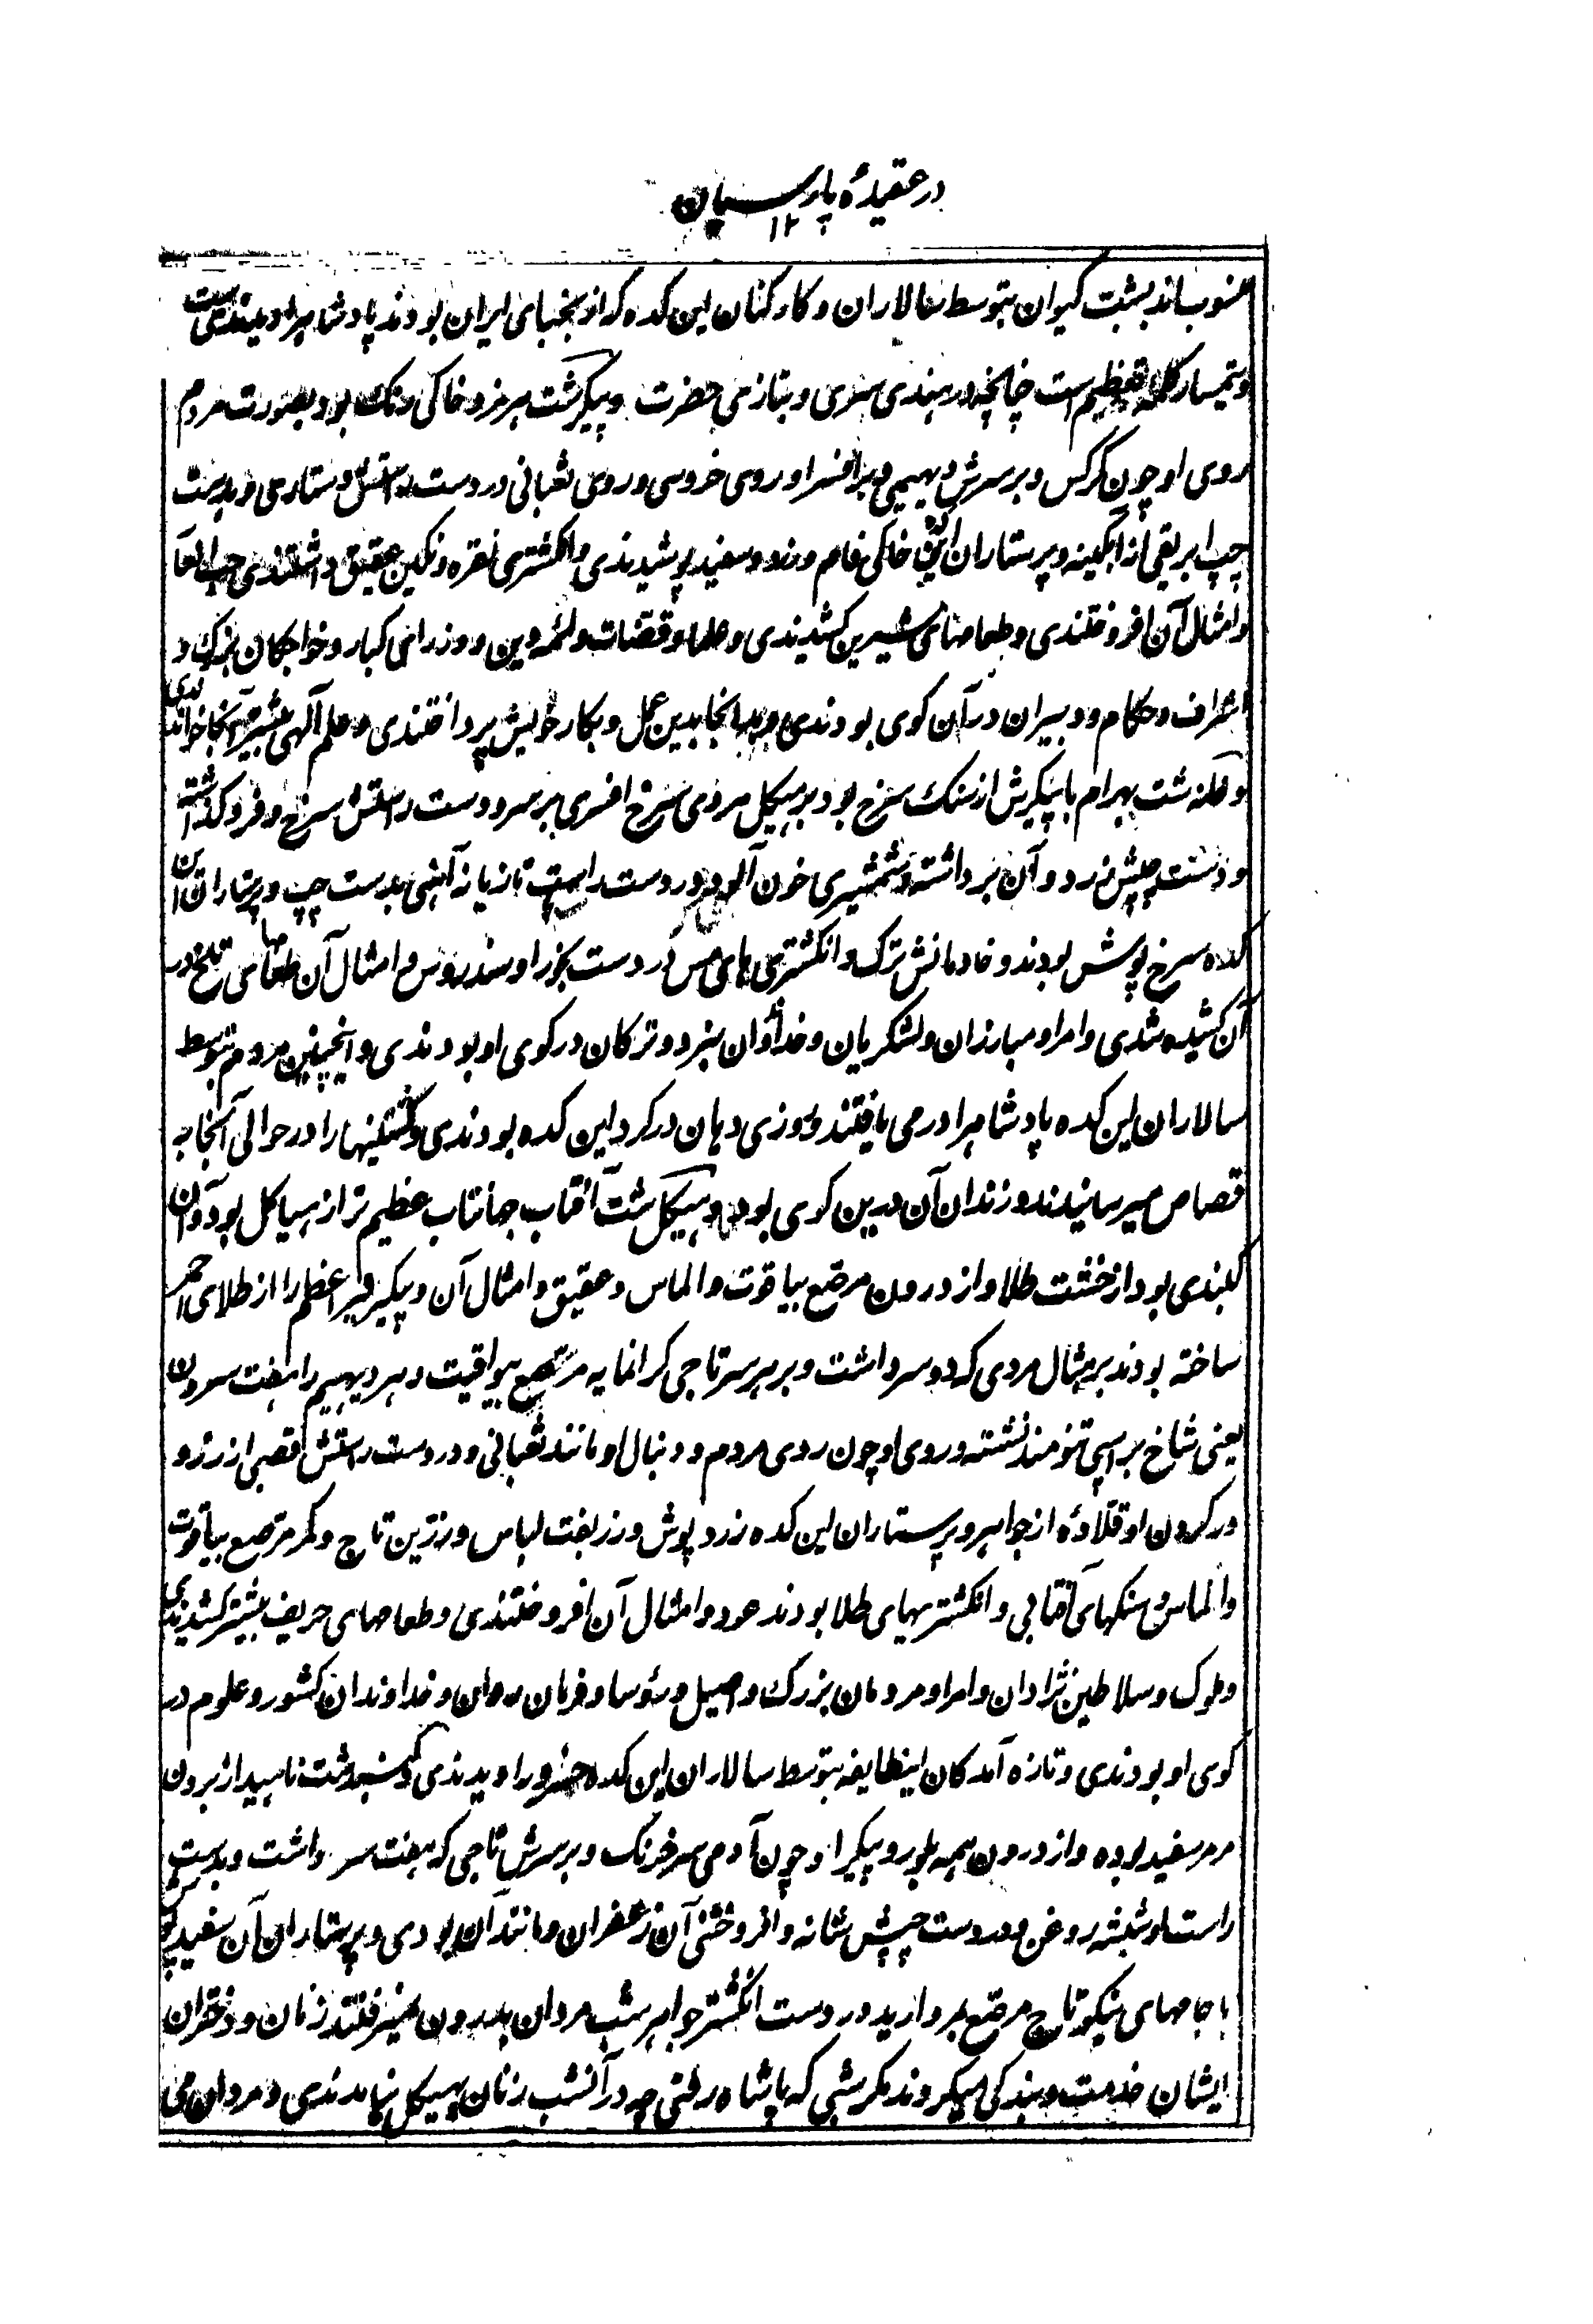 در عقیدهٔ پارسیان
۱۲
منسوب‌اند بشت کیوان بتوسط سالاران و کارکنان این کده که از نجبای ایران بودند پادشاه را دیدندی
و تیمسار کلمه تعظیم است چنانچه در هندی سری و بتازی حضرت و پیکر شت هرمزد خاکی رنک بود بصورت مردم
روی او چون کرکس و بر سرش دیهیمی و بر افسر او روی خروسی و روی ثعبانی در دست راستش دستاری و بدست
چپ ابریقی از آبکینه و پرستاران این خاکی فام و زرد و سفید پوشیدندی و انکشتری نقره و نکین عقیق داشتندی حب الغا
و امثال آن افروختندی و طعامهای شیرین کشیدندی و علما و قضات و ائمه دین و وزرای کبار و خواجکان بزرک و
اشراف و حکام و دبیران در آن کوی بودندی و بدانجا بدین عمل و بکار خویش پرداختندی و علم آلهی بیشتر آنجا خواندندی
و کده شت بهرام با پیکرش از سنک سرخ بود بر هیکل مردی سرخ افسری بر سر و دست راستش سرخ و فرو کذاشته
و دست چپش زرد و آن برداشته و شمشیری خون آلود در دست راست تازیانه آهنی بدست چپ و پرستاران این
کده سرخ پوش بودند و خادمانش ترک و انکشتری های مس در دست بخور او سندروس و امثال آن طعامهای تلخ در
آن کشیده شدی و امرا و مبارزان و لشکریان و خداوان نبرد و ترکان در کوی او بودندی و اینچنین مردم بتوسط
سالاران این کده پادشاه را درمی یافتند و روزی دهان در کرد این کده بودندی و کشتنیها را در حوالی آنجا به
قصاص میرسانیدند و زندان آن درین کوی بود و هیکل شت آفتاب جهانتاب عظیم تر از هیاکل بود و آن
کلبندی بود از خشت طلا و از درون مرصع بیاقوت و الماس و عقیق و امثال آن و پیکر نیر اعظم را از طلای احمر
ساخته بودند بر مثال مردی که دو سر داشت و بر هر سر تاجی کرانمایه مرصع بیواقیت و هر دیهیم را هفت سرون
یعنی شاخ بر اسپی تنومند نشسته و روی او چون روی مردم و دنبال او مانند ثعبانی و در دست راستش قصبی از زر و
در کردن او قلادهٔ از جواهر و پرستاران این کده زرد پوش و زربفت لباس و زرین تاج و کمر مرصع بیاقوت
و الماس و سنکهای آفتابی و انکشتریهای طلا بودند عود و امثال آن افروختندی و طعامهای حریف بیشتر کشیدندی
و ملوک و سلاطین نژادان و امرا و مردمان بزرک و اصیل و رئوسا و فرمان روان و خداوندان کشور و علوم در
کوی او بودندی و تازه آمدکان اینطایفه بتوسط سالاران این کده خسرو را دیدندی کنبد شت ناهید از برون
مرمر سفید بوده و از درون همه بلور و پیکر او چون آدمی سرخ رنک و بر سرش تاجی که هفت سر داشت و بدست
راست او شیشه روغن و در دست چپش شانه و افروختنی آن زعفران و مانند آن بودی و پرستاران آن سفید پوش
با جامهای نیکو تاج مرصع بمروارید در دست انکشتر جواهر شب مردان بدرون نمیرفتند زنان و دختران
ایشان خدمت و بندکی میکردند مکر شبی که پادشاه رفتی چه در آنشب زنان بهیکل نیامدندی و مردان می